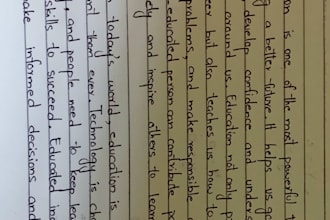 on is one of the most powerful t
a better future. It helps us ge
develop confidence and unders
around us. Education not only p
eer but also teaches us how to
problems, and make responsible
educated person can contribute p
ety and inspire others to learn
today's world, education is
nt than ever. Technology is ch
y and people need to keep lea
skills to succeed. Educated in
ake informed decisions and